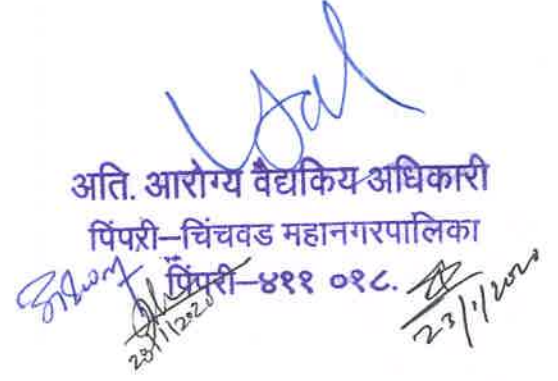 अति. आरोग्य वैद्यकिय अधिकारी
पिंपरी–चिंचवड महानगरपालिका
पिंपरी–४११ ०१८.
23/1/2020